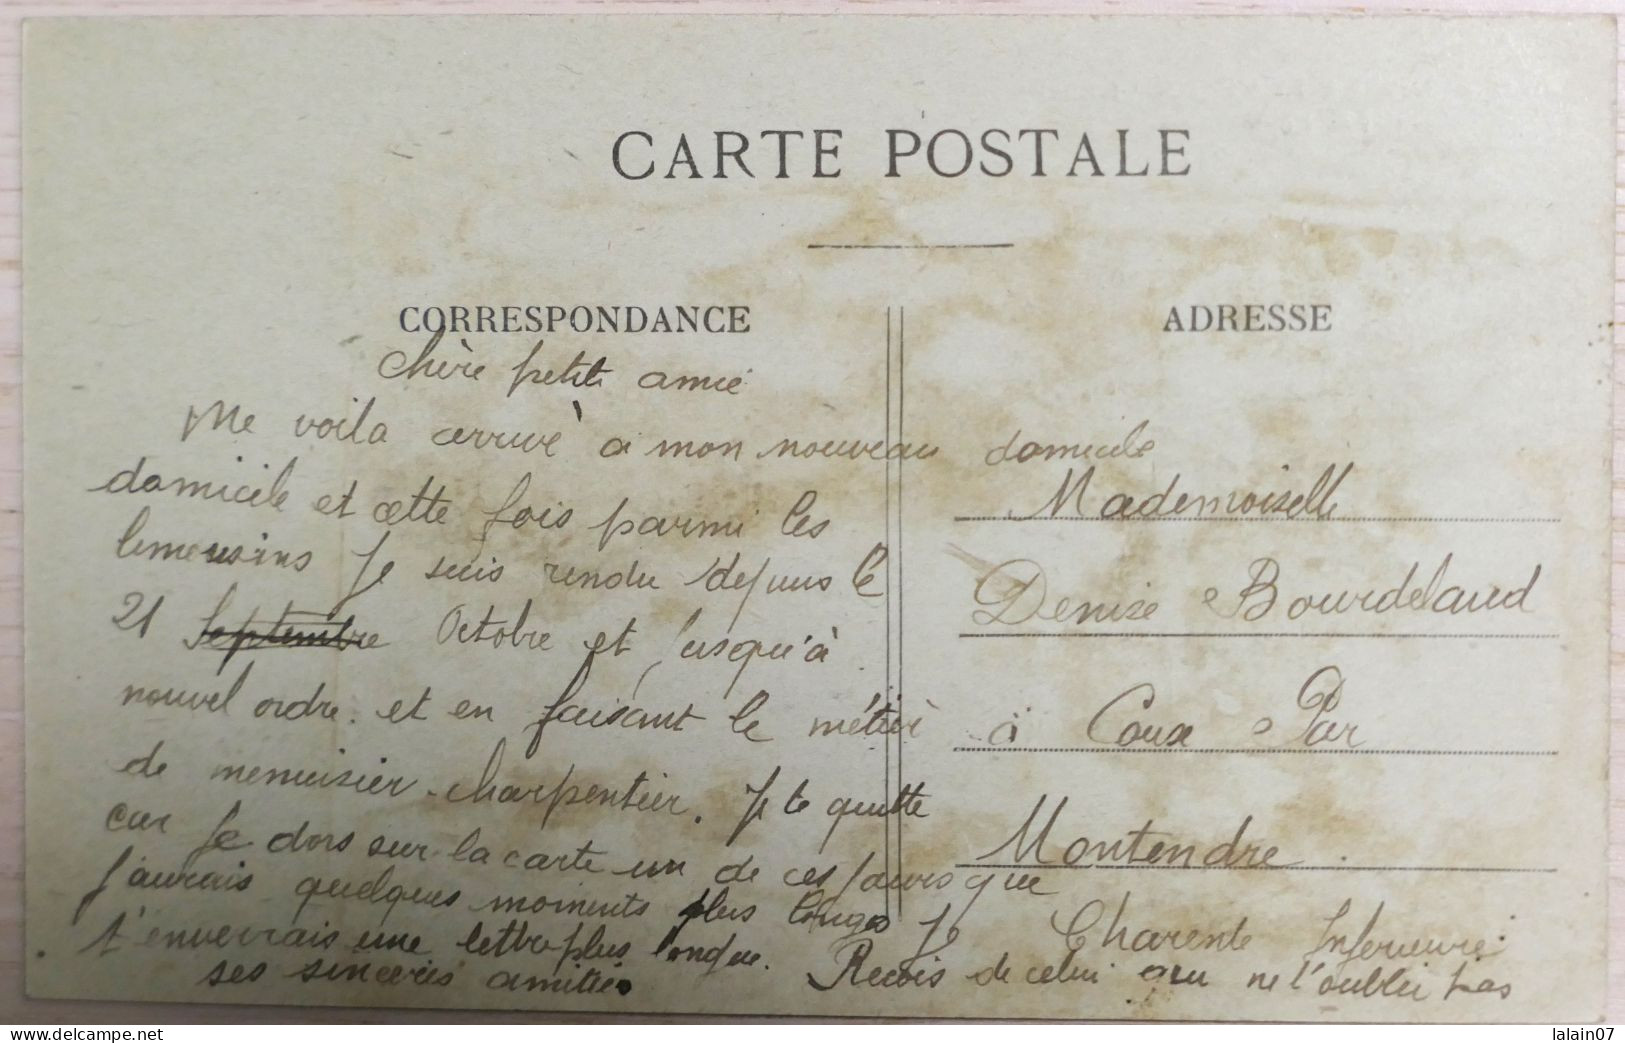 CARTE POSTALE
CORRESPONDANCE
Chère petite amie
Me voila arrivé à mon nouveau domicile
domicile et cette fois parmi les
limousins Je suis rendu depuis le
21 Septembre Octobre et jusqu'à
nouvel ordre. et en faisant le métier
de menuisier-charpentier. Je te quitte
car je dors sur la carte un de ces jours que
j'aurais quelques moments plus longs Je
t'enverrais une lettre plus longue. Recois de celui qui ne l'oublie pas
ses sincères amitiés
ADRESSE
Mademoiselle
Denise Bourdelaud
à Coux Par
Montendre
Charente Inferieure
delcampe.net
lalain07